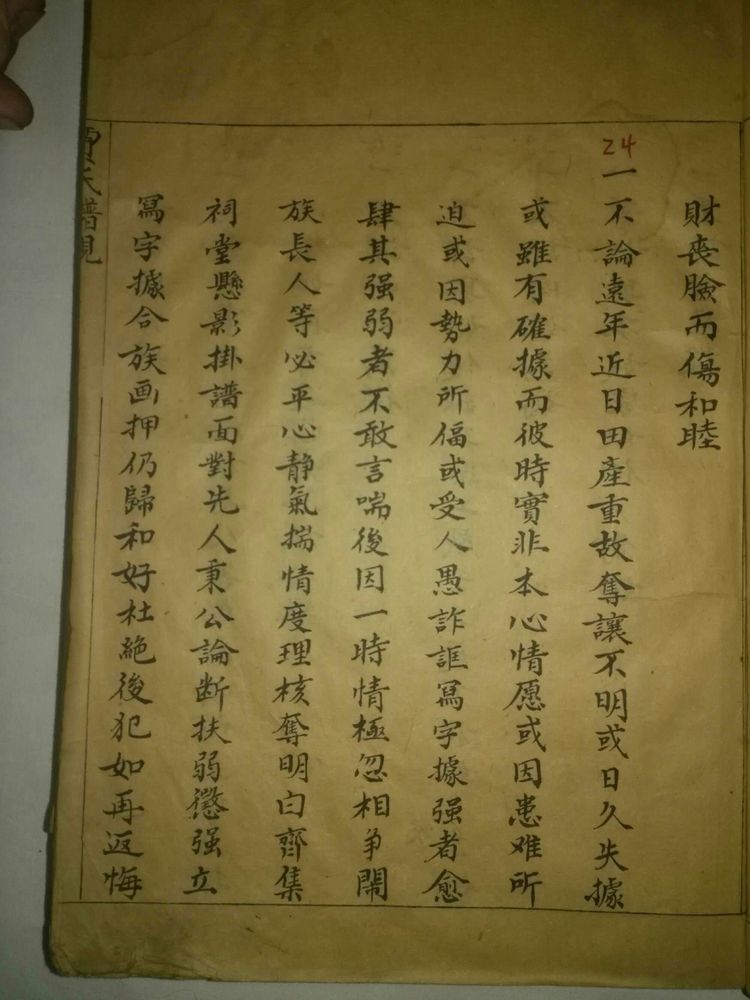 財喪臉而傷和睦
24
一不論遠年近日田產重故奪讓不明或日久失據
或雖有確據而彼時實非本心情愿或因患难所
迫或因勢力所偪或受人愚詐誆寫字據强者愈
肆其强弱者不敢言喘後因一時情極忽相争鬧
族長人等必平心静氣揣情度理核奪明白齊集
祠堂懸影掛譜面對先人秉公論断扶弱懲强立
寫字據合族画押仍歸和好杜絶後犯如再返悔
賈氏譜規